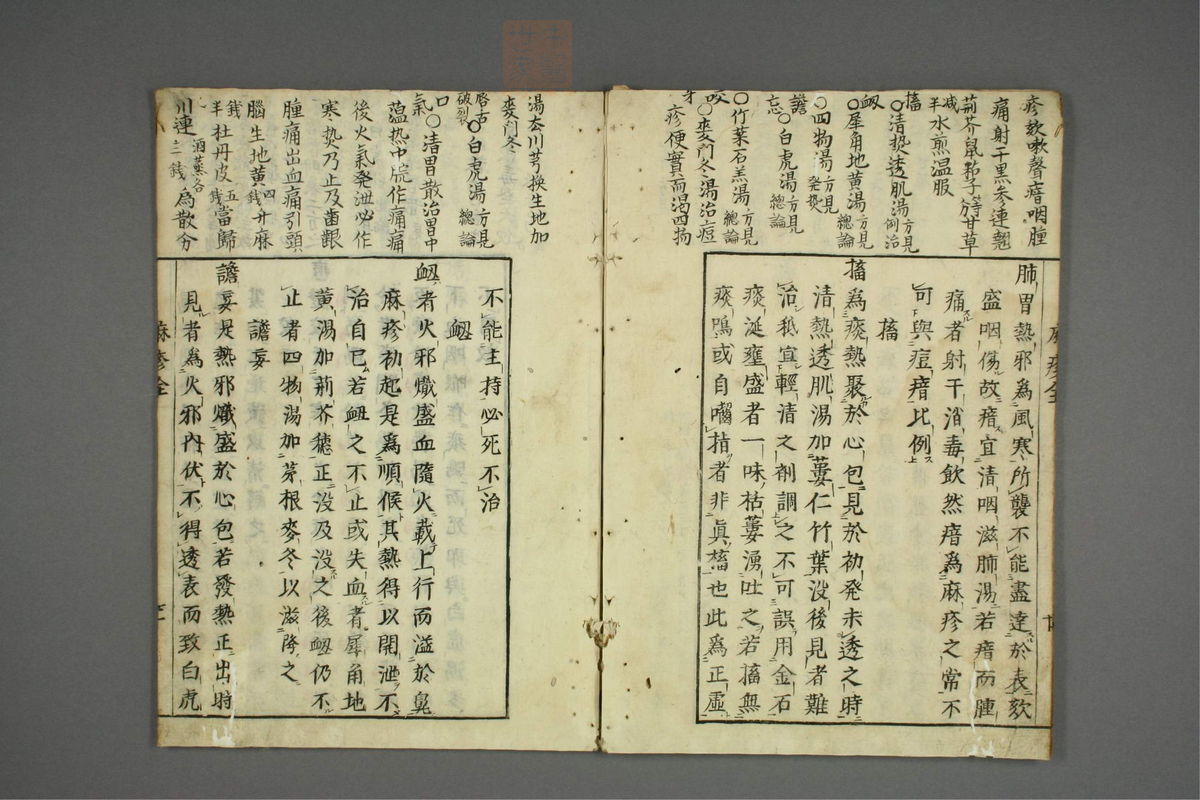 疹欬嗽聲瘖咽腫
痛射干黒参連翹
荊芥鼠粘子分等甘草
减半水煎温服
搐
○清熱透肌湯方見例治
衂
○犀角地黄湯方見總論
○四物湯方見発熱
譫忘
○白虎湯方見總論
○竹葉石羔湯方見總論
○麥門冬湯治痘
疹便實而渇四物
湯去川芎換生地加
麥門冬
唇舌破裂○白虎湯方見總論
口氣
○清胃散治胃中
蕰热中脘作痛痛
後火氣発泄必作
寒热乃止及齒齦
腫痛出血痛引頭
腦生地黄四錢升麻
錢半牡丹皮五錢當歸
川連三錢酒蒸各為散分
肺胃熱邪為風寒所襲不能盡達於表欬
盛咽傷故瘖宜清咽滋肺湯若瘖而腫
痛者射干消毒飲然瘖為麻疹之常不
可與痘瘖比例
搐
搐為痰熱聚於心包見於初発未透之時
清熱透肌湯加蔞仁竹葉没後見者難
治秖宜輕清之剤調之不可誤用金石
痰涎壅盛者一味枯蔞湧吐之若搐無
痰鳴或自囓指者非眞搐也此為正虛
不能主持必死不治
衂
衂者火邪熾盛血隨火載上行而溢於鼻
麻疹初起是為順候其熱得以開泄不
治自已若衂之不止或失血者犀角地
黄湯加荊芥穂正没及没之後衂仍不
止者四物湯加茅根麥冬以滋降之
譫妄
譫妄是熱邪熾盛於心包若發熱正出時
見者為火邪内伏不得透表而致白虎
麻疹全